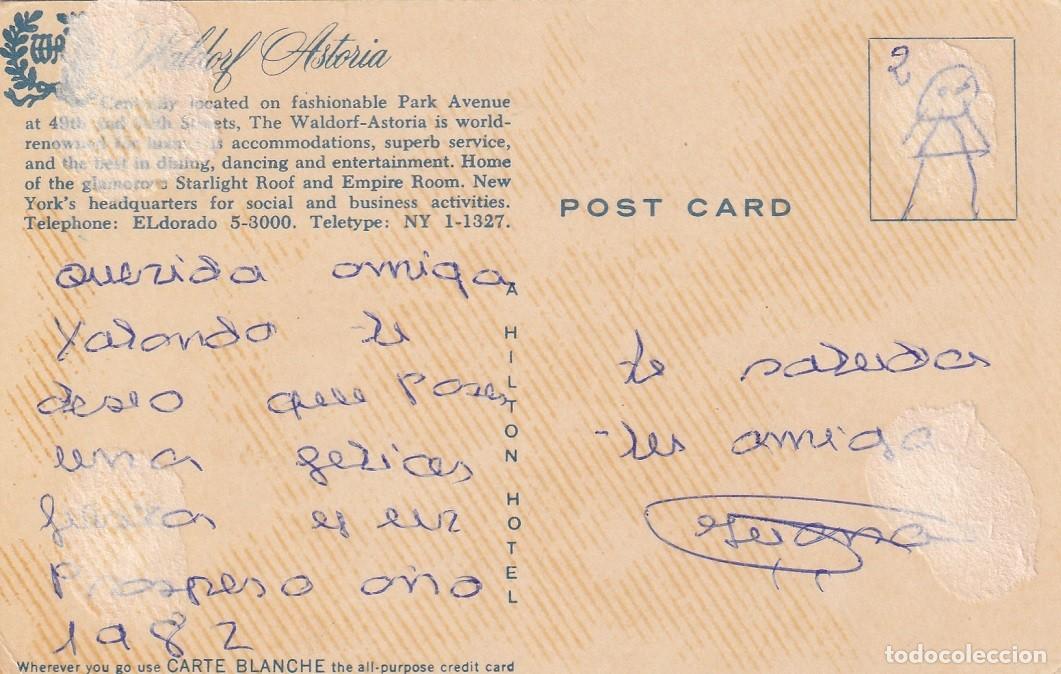 Waldorf Astoria
Centrally located on fashionable Park Avenue
at 49th and Streets, The Waldorf-Astoria is world-
renowned for luxurious accommodations, superb service,
and the best in dining, dancing and entertainment. Home
of the glamorous Starlight Roof and Empire Room. New
York's headquarters for social and business activities.
Telephone: ELdorado 5-3000. Teletype: NY 1-1327.
POST CARD
2
querida amiga
Yolanda te
deseo que pases
una felices
fiestas y un
prospero año
1982
A HILTON HOTEL
te saluda
tu amiga
Wherever you go use CARTE BLANCHE the all-purpose credit card
todocoleccion